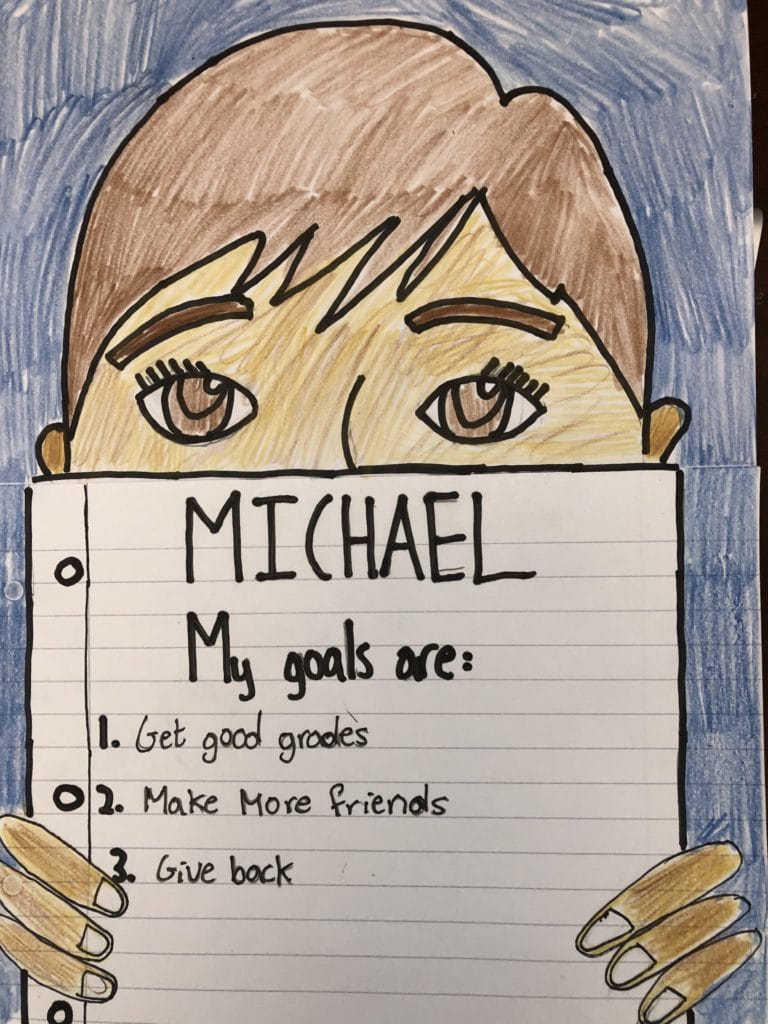 MICHAEL
My goals are:
1. Get good grades
2. Make More friends
3. Give back